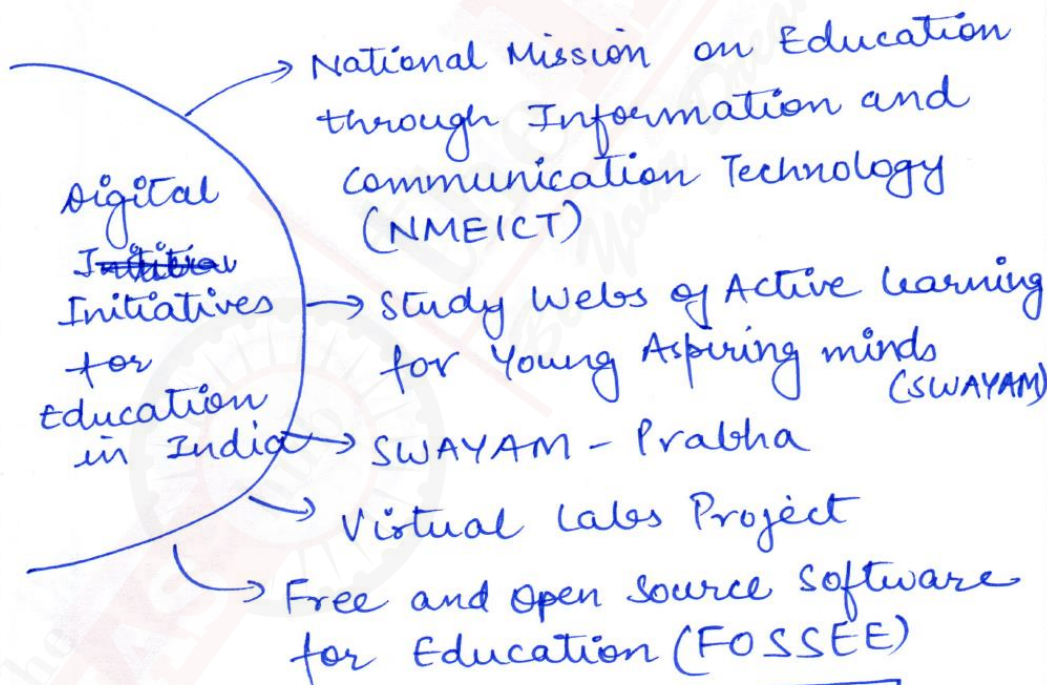 Digital
Initiatives
for
Education
in India
National Mission on Education
through Information and
Communication Technology
(NMEICT)
Study Webs of Active Learning
for Young Aspiring minds
(SWAYAM)
SWAYAM - Prabha
Virtual Labs Project
Free and Open Source Software
for Education (FOSSEE)